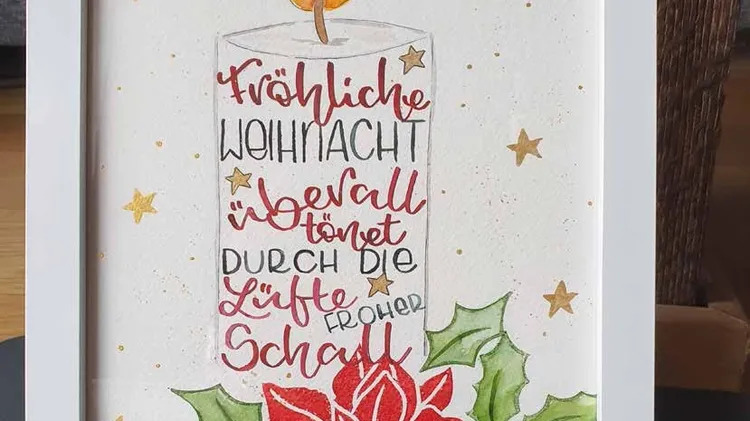 Fröhliche
WEIHNACHT
überall
tönet
DURCH DIE
Lüfte
FROHER
Schall